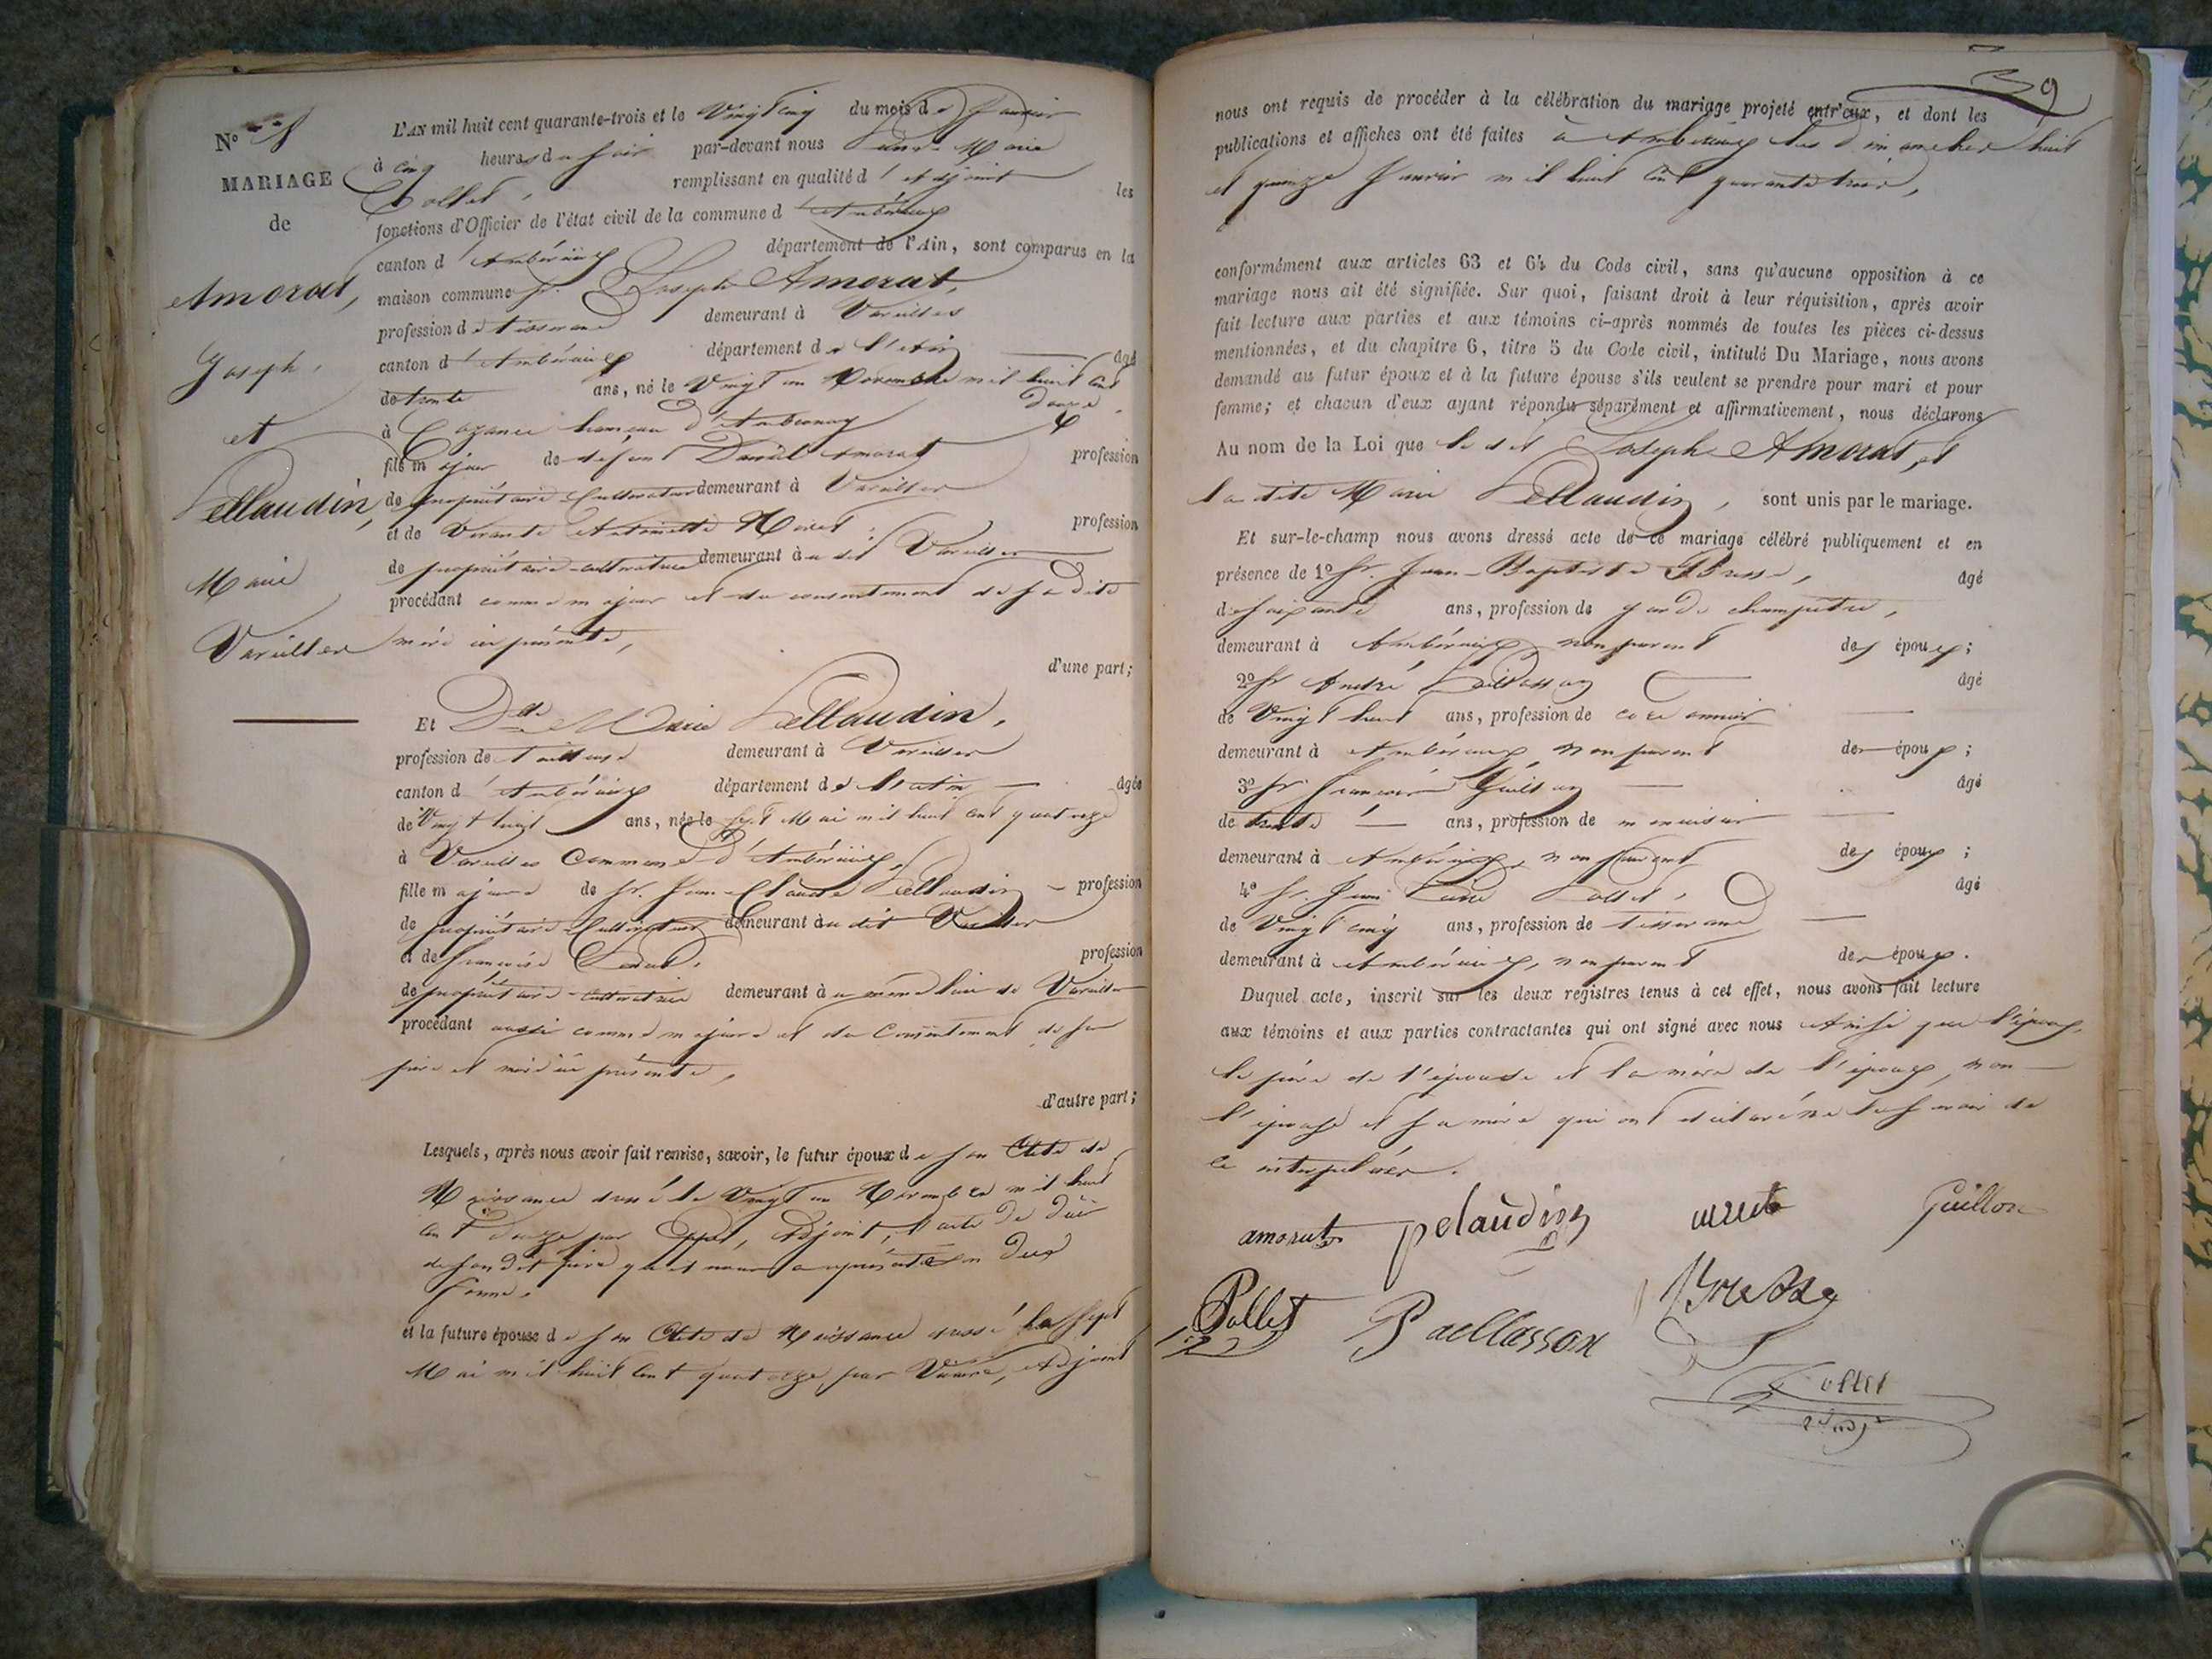 N°
MARIAGE
de
Amorat,
Joseph,
et
Pellaudin,
Marie
Vareilles
L'AN mil huit cent quarante-trois et le Vingt cinq du mois de Janvier
à cinq heures du soir par-devant nous Marie
Collet, remplissant en qualité d'adjoint les
fonctions d'Officier de l'état civil de la commune d'Ambérieux
canton d'Ambérieux département de l'Ain, sont comparus en la
maison commune Sr. Joseph Amorat,
profession de tisserand demeurant à Vareilles
canton d'Ambérieux département de l'Ain âgé
de trente ans, né le Vingt un Novembre mil huit cent
douze
à hameau d'Ambronay
fils majeur de défunt Daniel Amorat profession
de propriétaire-Cultivateur demeurant à Vareilles
et de Vivante Antoinette profession
de propriétaire-cultivatrice demeurant au dit Vareilles
procédant comme majeur et du consentement de sa dite
mère ici présente,
d'une part;
Et Dlle Marie Pellaudin,
profession de tailleuse demeurant à Vareilles
canton d'Ambérieux département de l'Ain âgée
de Vingt huit ans, née le sept Mai mil huit cent quatorze
à Vareilles Commune d'Ambérieux,
fille majeure de Sr. Jean-Claude Pellaudin profession
de propriétaire-Cultivateur demeurant au dit Vareilles
et de Françoise profession
de propriétaire-cultivatrice demeurant au même lieu de Vareilles
procédant aussi comme majeure et du Consentement de ses
père et mère ici présents,
d'autre part;
Lesquels, après nous avoir fait remise, savoir, le futur époux de son Acte de
Naissance dressé le Vingt un Novembre mil huit
cent douze par adjoint, l'acte de décès
de son dit père qu'il nous a représenté en due
forme.
et la future épouse de son Acte de Naissance dressé le sept
Mai mil huit cent quatorze, par adjoint
39
nous ont requis de procéder à la célébration du mariage projeté entr'eux, et dont les
publications et affiches ont été faites à Ambérieux les dimanches huit
et quinze Janvier mil huit cent quarante trois,
conformément aux articles 63 et 64 du Code civil, sans qu'aucune opposition à ce
mariage nous ait été signifiée. Sur quoi, faisant droit à leur réquisition, après avoir
fait lecture aux parties et aux témoins ci-après nommés de toutes les pièces ci-dessus
mentionnées, et du chapitre 6, titre 5 du Code civil, intitulé Du Mariage, nous avons
demandé au futur époux et à la future épouse s'ils veulent se prendre pour mari et pour
femme; et chacun d'eux ayant répondu séparément et affirmativement, nous déclarons
Au nom de la Loi que le dit Joseph Amorat, et
la dite Marie Pellaudin, sont unis par le mariage.
Et sur-le-champ nous avons dressé acte de ce mariage célébré publiquement et en
présence de 1° Sr. Jean-Baptiste Bresse, âgé
de soixante ans, profession de garde champêtre,
demeurant à Ambérieux, non parent des époux;
2° Sr André Paillasson âgé
de Vingt huit ans, profession de cordonnier
demeurant à Ambérieux, non parent des époux;
3° Sr François Guillon âgé
de trente ans, profession de menuisier
demeurant à Ambérieux, non parent des époux;
4° Sr. Jean Pollet, âgé
de Vingt cinq ans, profession de tisserand
demeurant à Ambérieux, non parent des époux.
Duquel acte, inscrit sur les deux registres tenus à cet effet, nous avons fait lecture
aux témoins et aux parties contractantes qui ont signé avec nous Ainsi que l'époux,
le père de l'épouse et la mère de l'époux, non
l'épouse et sa mère qui ont déclaré ne le savoir de
ce interpelées.
amorat pelaudin Guillon
Pollet Paillasson Bresse
Collet
adj